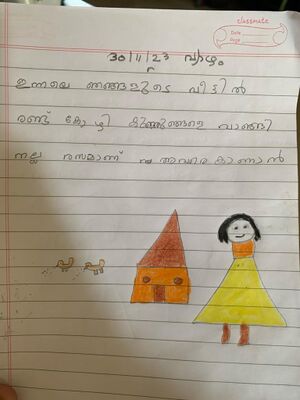 classmate
Date
Page
30/11/23 വ്യാഴം
ഇന്നലെ ഞങ്ങളുടെ വീട്ടിൽ
രണ്ട് കോഴി കുഞ്ഞുങ്ങളെ വാങ്ങി
നല്ല രസമാണ് അവരെ കാണാൻ